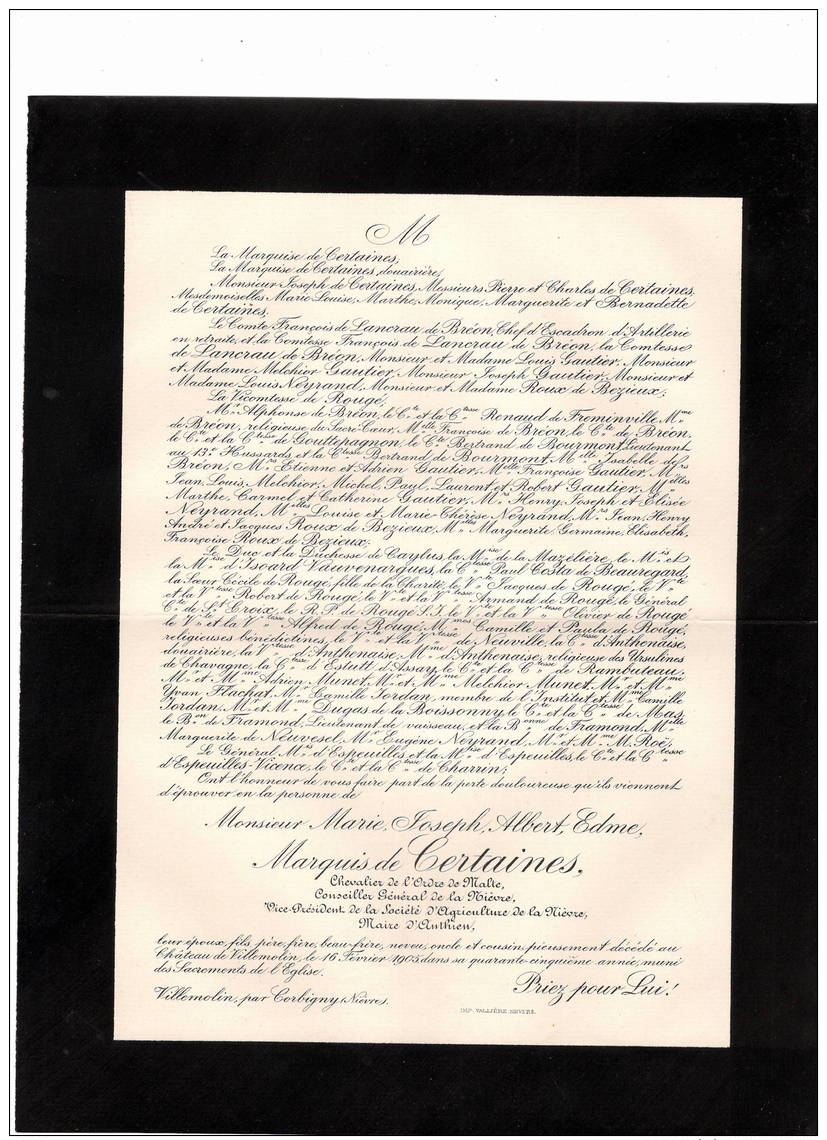 M
La Marquise de Certaines,
La Marquise de Certaines, douairière,
Monsieur Joseph de Certaines, Messieurs Pierre et Charles de Certaines,
Mesdemoiselles Marie-Louise, Marthe, Monique, Marguerite et Bernadette
de Certaines,
Le Comte François de Lancrau de Bréon, Chef d'Escadron d'Artillerie
en retraite, et la Comtesse François de Lancrau de Bréon, la Comtesse
de Lancrau de Bréon, Monsieur et Madame Louis Gautier, Monsieur
et Madame Melchior Gautier, Monsieur Joseph Gautier, Monsieur et
Madame Louis Neyrand, Monsieur et Madame Roux de Bezieux;
La Vicomtesse de Rougé,
Mr Alphonse de Bréon, le Cte et la Ctesse Renaud de Freminville, Mme
de Bréon, religieuse du Sacré-Cœur, Melle Françoise de Bréon, le Cte de Bréon,
le Cte et la Ctesse de Gouttepagnon, le Cte Bertrand de Bourmont, Lieutenant
au 13e Hussards et la Ctesse Bertrand de Bourmont, Melle Isabelle de
Bréon, Mrs Etienne et Adrien Gautier, Melle Françoise Gautier, Mrs
Jean, Louis, Melchior, Michel, Paul, Laurent et Robert Gautier, Melles
Marthe, Carmel et Catherine Gautier, Mrs Henry, Joseph et Elisée
Neyrand, Melles Louise et Marie-Thérèse Neyrand, Mrs Jean, Henry
André et Jacques Roux de Bezieux, Melles Marguerite, Germaine, Elisabeth,
Françoise Roux de Bezieux;
Le Duc et la Duchesse de Caylus, la Mise de la Mazelière, le Mis et
la Mise d'Isoard Vauvenargues, la Ctesse Paul Costa de Beauregard,
la Sœur Cécile de Rougé, fille de la Charité, le Vte Jacques de Rougé, le Vte
et la Vtesse Robert de Rougé, le Vte et la Vtesse Armand de Rougé, le Général
Cte de St Croix, le R. P. de Rougé S.J. le Vte et la Vtesse Olivier de Rougé
le Vte et la Vtesse Alfred de Rougé, Mmes Camille et Paula de Rougé,
religieuses bénédictines, le Vte et la Vtesse de Neuville, la Ctesse d'Anthenaise,
douairière, la Vtesse d'Anthenaise, Mme d'Anthenaise, religieuse des Ursulines
de Chavagne, la Ctesse d'Estutt d'Assay, le Cte et la Ctesse de Rambuteau,
Mr et Mme Adrien Munet, Mr et Mme Melchior Munet, Mr et Mme
Yvan Flachat, Mr Camille Jordan, membre de l'Institut et Mme Camille
Jordan, Mr et Mme Dugas de la Boissonny, le Cte et la Ctesse de Mas,
le Bon de Framond, Lieutenant de vaisseau, et la Bonne de Framond, Melle
Marguerite de Neuvesel, Mr Eugène Neyrand, Mr et Mme M. Roë;
Le Général Mis d'Espeuilles et la Mise d'Espeuilles, le Cte et la Ctesse
d'Espeuilles-Vicence, le Cte et la Ctesse de Charrin;
Ont l'honneur de vous faire part de la perte douloureuse qu'ils viennent
d'éprouver en la personne de
Monsieur Marie, Joseph, Albert, Edme,
Marquis de Certaines,
Chevalier de l'Ordre de Malte,
Conseiller Général de la Nièvre,
Vice-Président de la Société d'Agriculture de la Nièvre,
Maire d'Anthien,
leur époux, fils, père, frère, beau-frère, neveu, oncle et cousin, pieusement décédé au
Château de Villemolin, le 16 Février 1905 dans sa quarante-cinquième année, muni
des Sacrements de l'Eglise.
Priez pour Lui!
Villemolin, par Corbigny, Nièvre.
IMP. VALLIÈRE NEVERS.